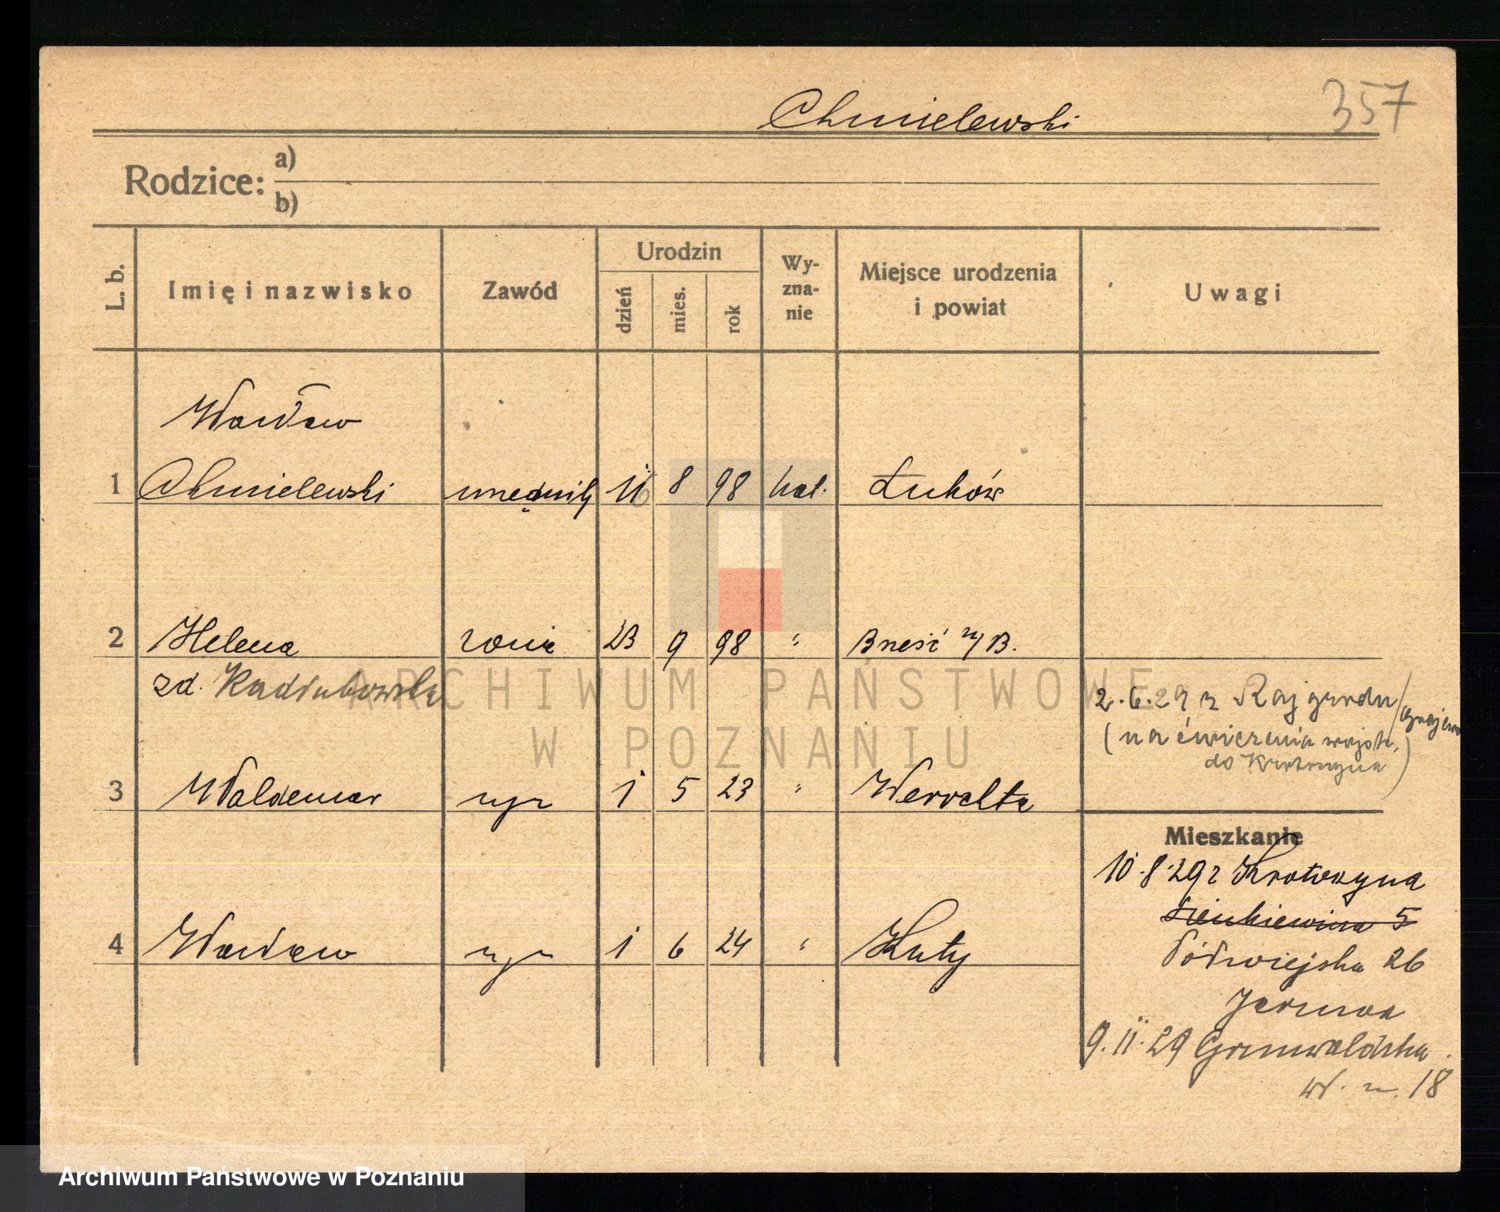 Chmielewski 357
Rodzice: a)
b)
L. b. Imię i nazwisko Zawód Urodzin dzień mies. rok Wyznanie Miejsce urodzenia i powiat Uwagi
Wacław
1 Chmielewski urzędnik 8 98 kat. Łuków
2 Helena żona 23 9 98 " Brześć n/B.
zd. Radziubowska
2.6.29 z Rajgrodu / Grajewo
(na ćwiczenia wojsk.
do Krotoszyna)
3 Waldemar syn 1 5 23 " 
Mieszkanie
10.8.29 r Krotoszyna
Sienkiewicza 5
4 Wacław syn 1 6 24 " Kuty
26
9.11.29 Grunwaldzka
18
ARCHIWUM PAŃSTWOWE
W POZNANIU
Archiwum Państwowe w Poznaniu